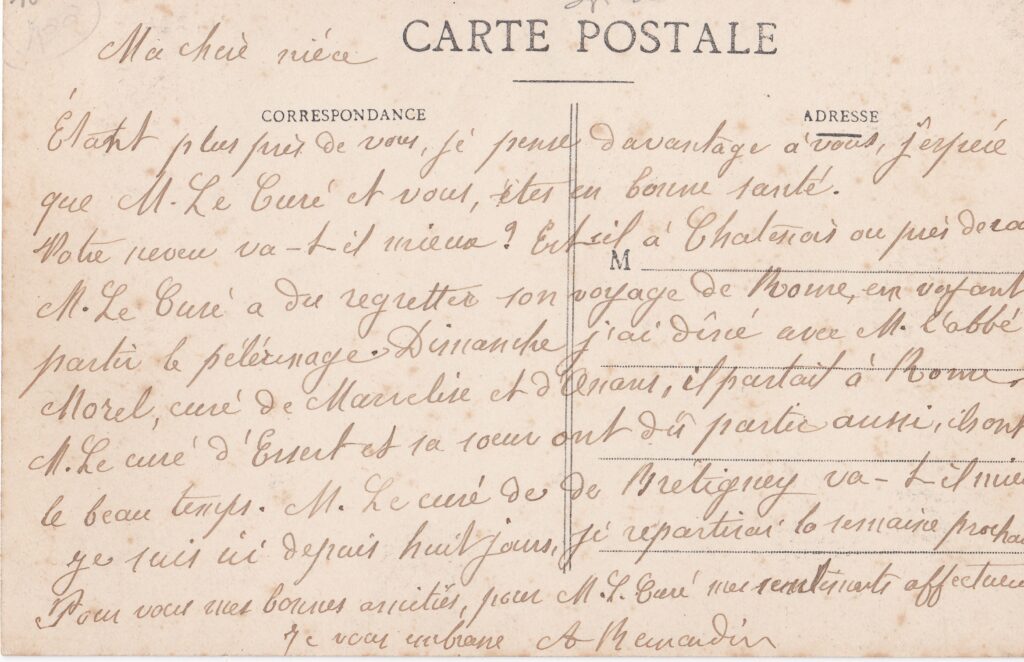 CARTE POSTALE
Ma chère nièce
CORRESPONDANCE
ADRESSE
Étant plus près de vous, je pense davantage à vous, j'espère
que M. Le Curé et vous, êtes en bonne santé.
Votre neveu va-t-il mieux ? Est-il à Chatenois ou près de
M
M. Le Curé a du regretter son voyage de Rome, en voyant
partir le pélérinage. Dimanche j'ai dîné avec M. l'abbé
Morel, curé de Marvelise et d'Onans, il partait à Rome.
M. Le curé d'Essert et sa soeur ont dû partir aussi, ils ont
le beau temps. M. Le curé de de Brétigney va-t-il mie
je suis ici depuis huit jours, je repartirai la semaine procha
Pour vous mes bonnes amitiés, pour M. L. Curé mes sentiments affectueu
Je vous embrasse A Remondin